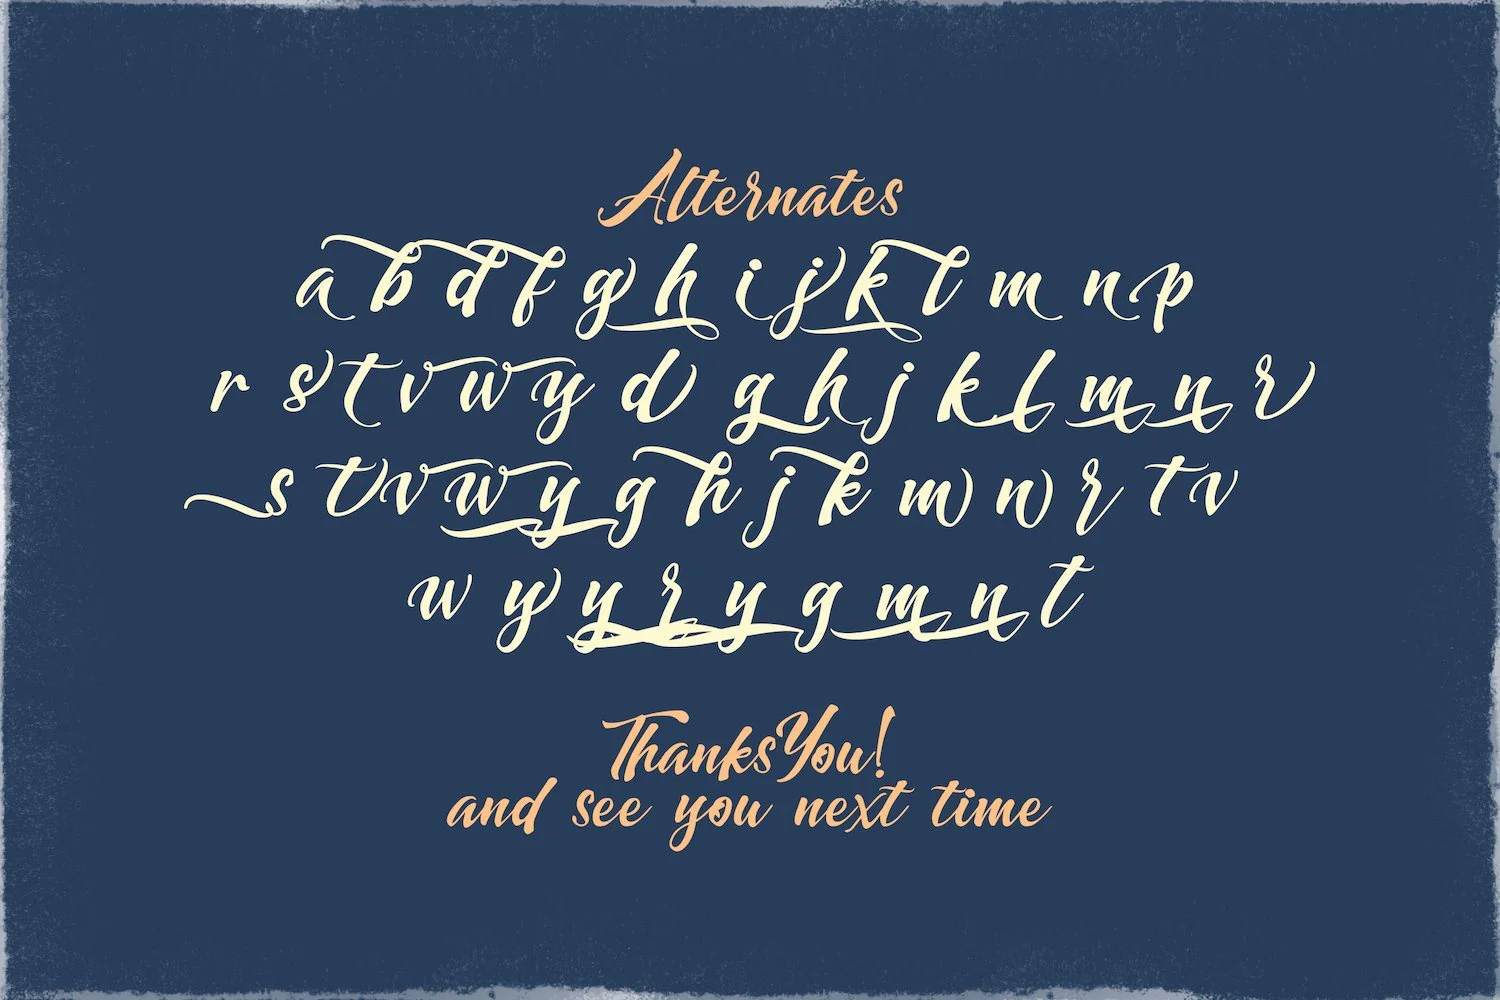 Alternates
a b d f g h i j k l m n p
r s t v w y d g h j k l m n r
s t v w y g h j k m n r t v
w y y r y g m n t
ThanksYou!
and see you next time